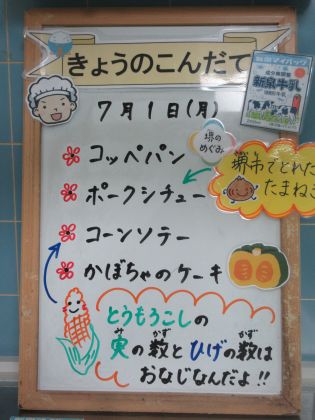 きょうのこんだて
新泉牛乳
7月1日(月)
堺の
めぐみ
コッペパン
ポークシチュー
堺市でとれた
たまねぎ
コーンソテー
かぼちゃのケーキ
とうもろこしの
実の数とひげの数は
み かず かず
おなじなんだよ!!